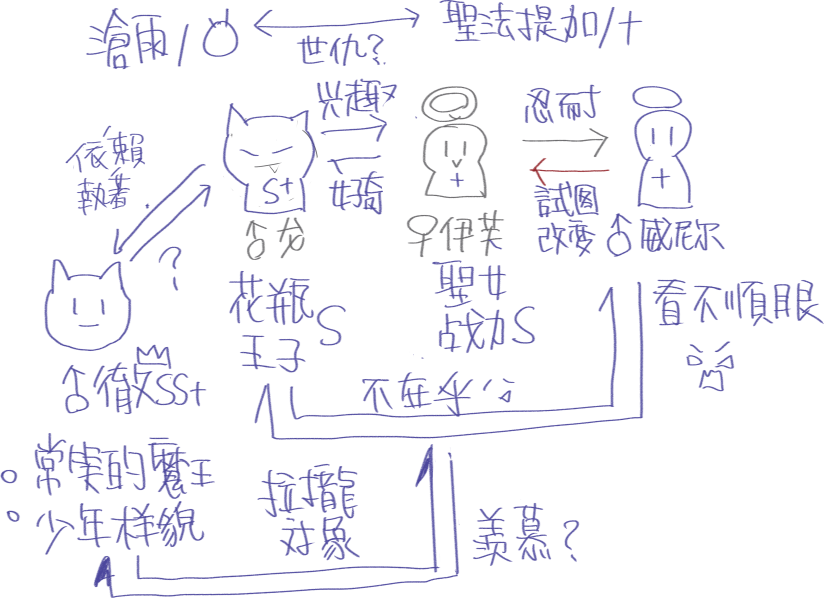 滄雨/
世仇?
聖法提加/十
依賴
執著
兴趣
好奇
忍耐
試圖
改变
S+
♂龙
♀伊芙
♂威尼尔
?
花瓶
王子S
聖女
战力S
看不順眼
♂徹SS+
不在乎
常笑的魔王
少年样貌
拉攏
对象
羨慕?